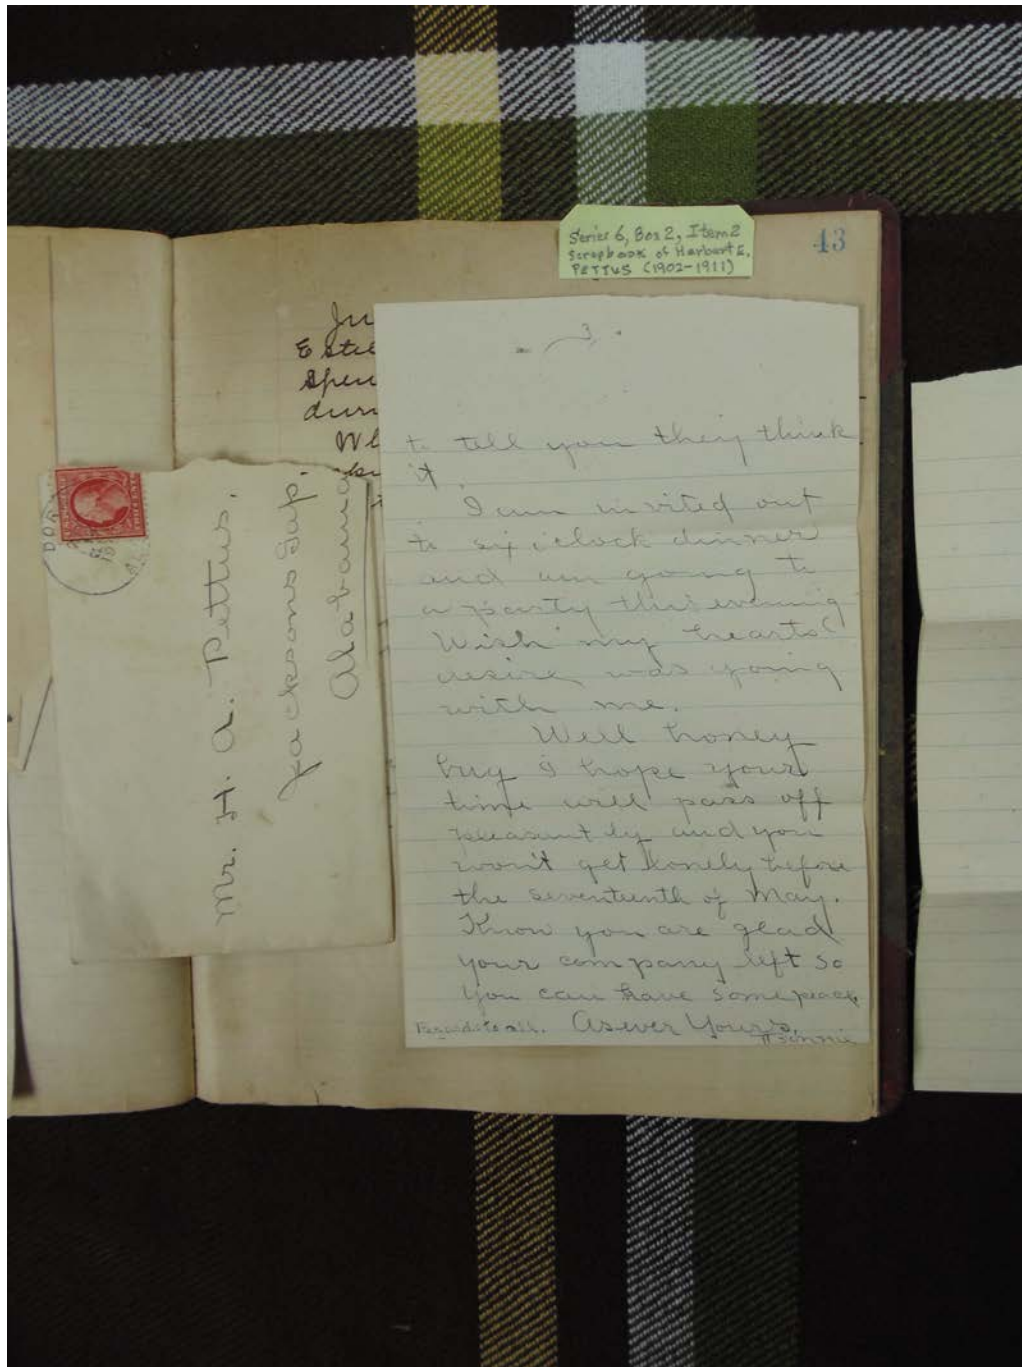 Series 6, Box 2, Item 2
Scrapbook of Herbert E.
PETTUS (1902-1911)
43
Ju
Estel
Spen
durn
Wh
Mr. H. A. Pettus,
Jacksons Gap.
Alabama
3
to tell you they think
it.
I am invited out
to six o'clock dinner
and am going to
a party this evening
Wish my hearts
desire was going
with me.
Well honey
bug I hope your
time will pass off
pleasantly and you
won't get lonely before
the seventeenth of May.
Know you are glad
your company left so
you can have some peace
Regards to all. As ever Yours,